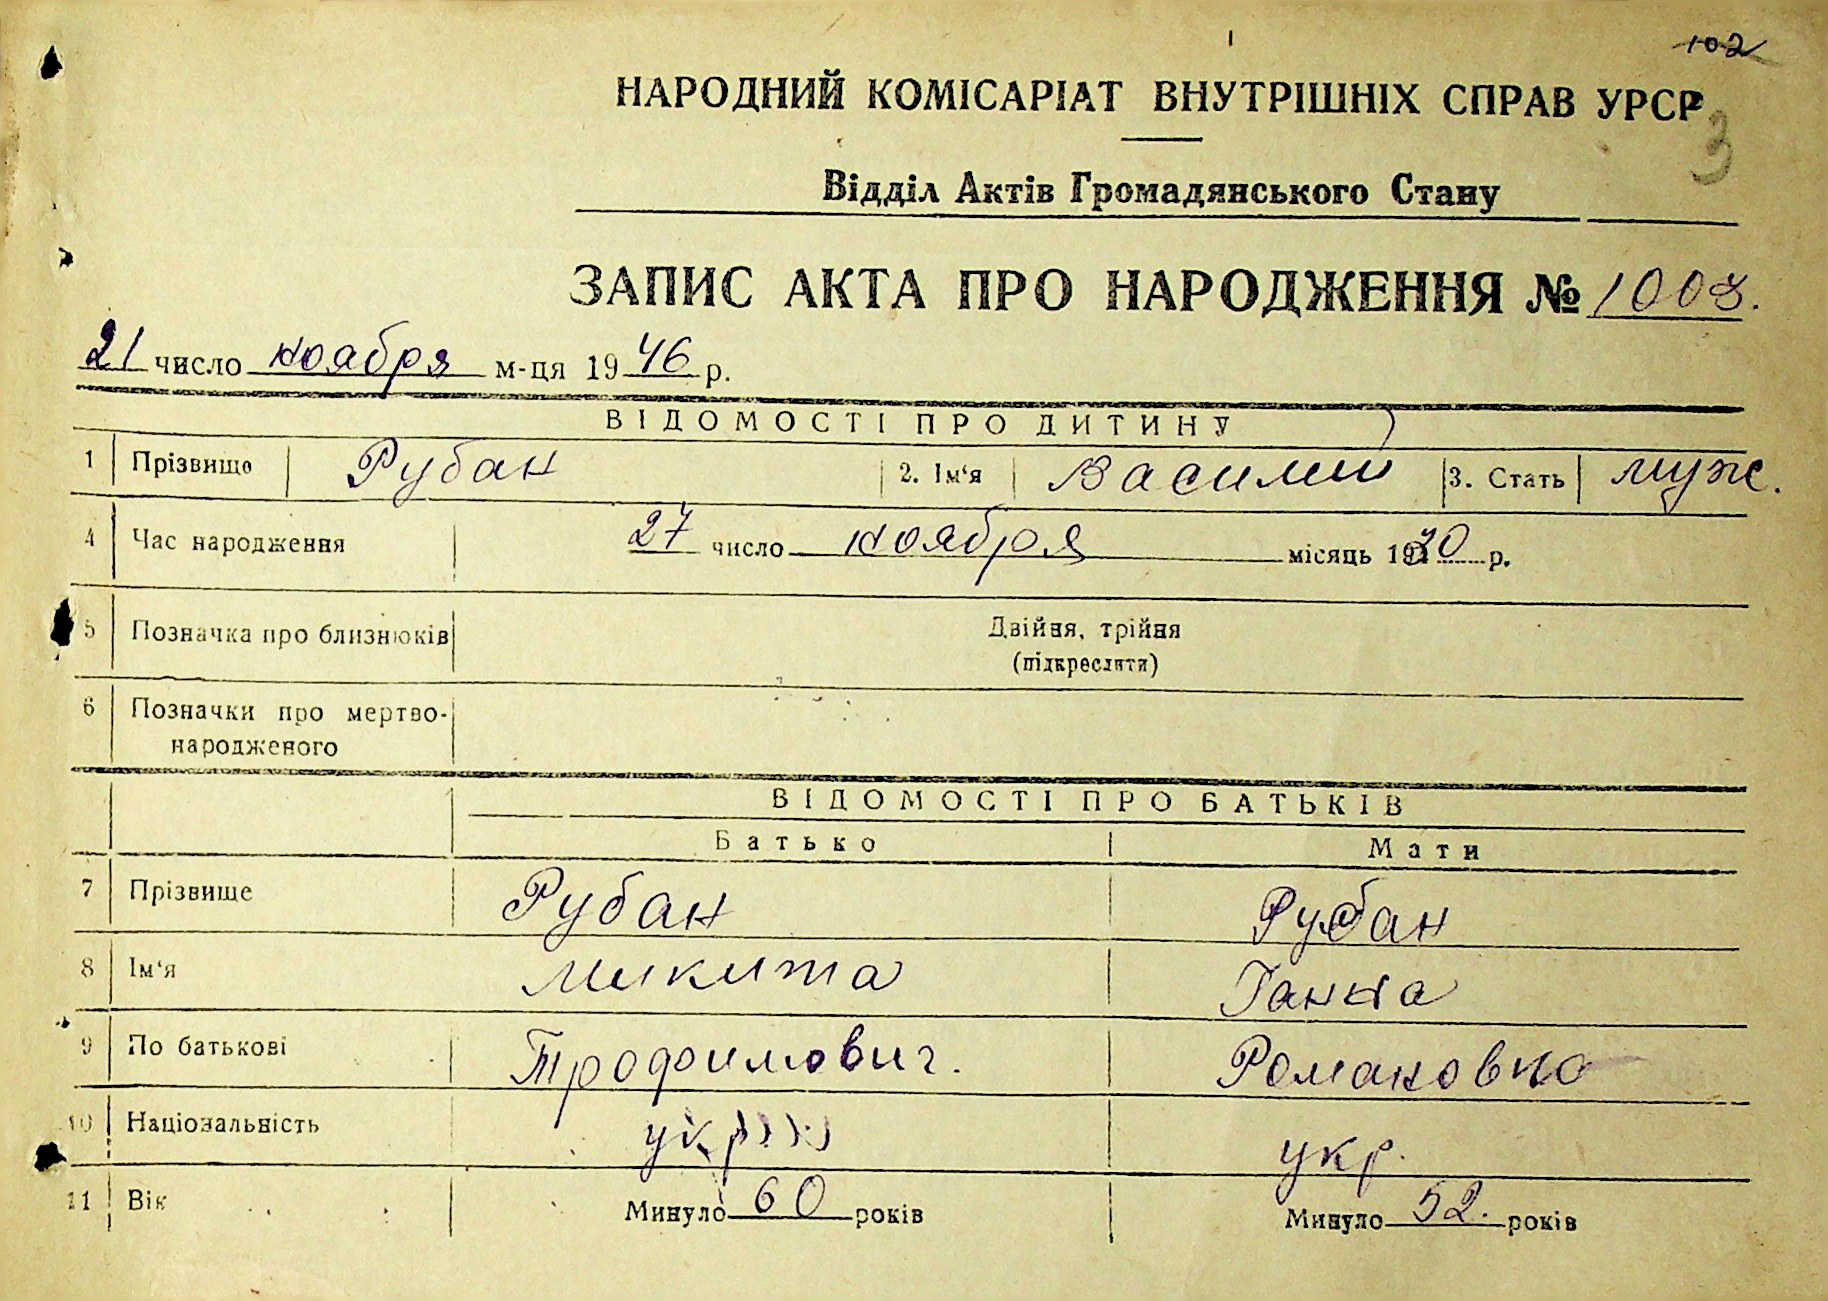 102
НАРОДНИЙ КОМІСАРІАТ ВНУТРІШНІХ СПРАВ УРСР
3
Відділ Актів Громадянського Стану
ЗАПИС АКТА ПРО НАРОДЖЕННЯ № 1003.
21 число ноября м-ця 1946 р.
ВІДОМОСТІ ПРО ДИТИНУ
1 Прізвище Рубан 2. Ім'я Василий 3. Стать муж.
4 Час народження 27 число ноября місяць 1930 р.
5 Позначка про близнюків Двійня, трійня
(підкреслити)
6 Позначки про мертво-
народженого
ВІДОМОСТІ ПРО БАТЬКІВ
Батько Мати
7 Прізвище Рубан Рубан
8 Ім'я Микита Ганна
9 По батькові Трофимович. Романовна
10 Національність укр укр.
11 Вік Минуло 60 років Минуло 52. років